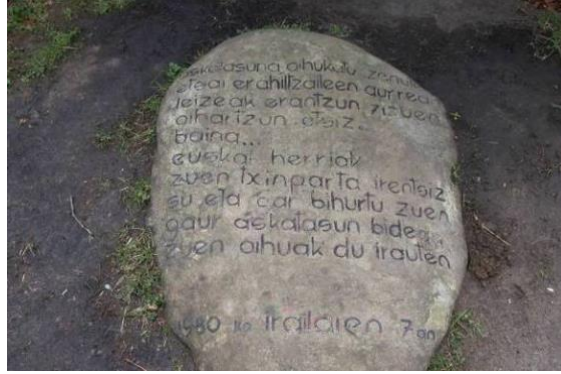 askatasuna oihukatu zenuten
etsai erahiltzaileen aurrean
leizeak erantzun zizuen
oihartzun etsiz.
baina...
euskal herriak
zuen txinparta irentsiz
su eta gar bihurtu zuen
gaur askatasun bidean
zuen oihuak du irauten
1980 ko irailaren 7an